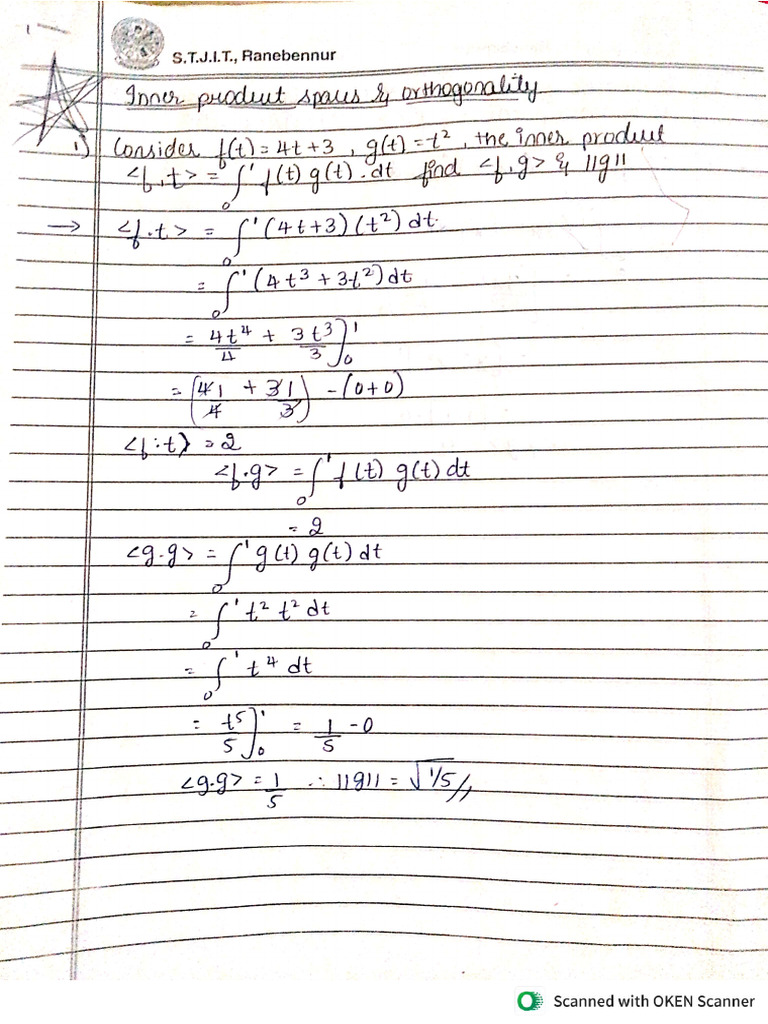 1
S.T.J.I.T., Ranebennur
Inner product spaus & orthogonality
1) Consider f(t) = 4t+3 , g(t) = t² , the inner product
<f.t> = ∫₀¹ f(t) g(t) . dt find <f.g> & ||g||
→ <f.t> = ∫₀¹ (4t+3) (t²) dt.
= ∫₀¹ (4t³ + 3t²) dt
= 4t⁴/4 + 3t³/3 ]₀¹
= (4 1/4 + 3 1/3) - (0+0)
<f.t> = 2
<f.g> = ∫₀¹ f(t) g(t) dt
= 2
<g.g> = ∫₀¹ g(t) g(t) dt
= ∫₀¹ t² t² dt
= ∫₀¹ t⁴ dt
= t⁵/5 ]₀¹ = 1/5 - 0
<g.g> = 1/5 ∴ ||g|| = √1/5 //
Scanned with OKEN Scanner